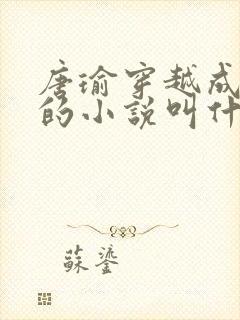 唐瑜穿越成
的小説叫什
蘇鎏